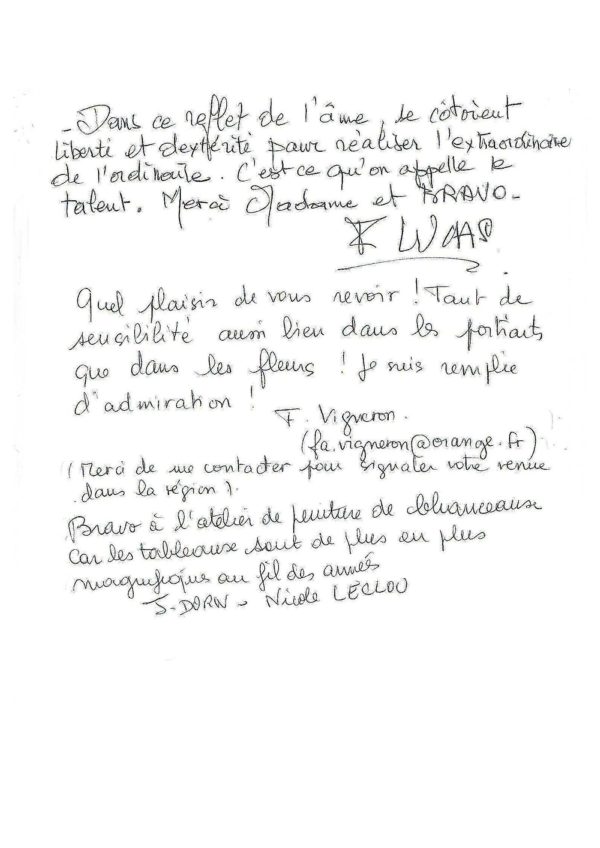 - Dans ce reflet de l'âme, se côtoient
liberté et dextérité pour réaliser l'extraordinaire
de l'ordinaire. C'est ce qu'on appelle le
talent. Merci Madame et BRAVO -
F LUCAS
Quel plaisir de vous revoir ! Tant de
sensibilité aussi bien dans les portraits
que dans les fleurs ! Je suis remplie
d'admiration !
F. Vigneron.
(fa.vigneron@orange.fr)
(Merci de me contacter pour signaler votre venue
dans la région).
Bravo à l'atelier de peinture de
Car les tableaux sont de plus en plus
magnifiques au fil des années
J-DORN - Nicole LECLOU